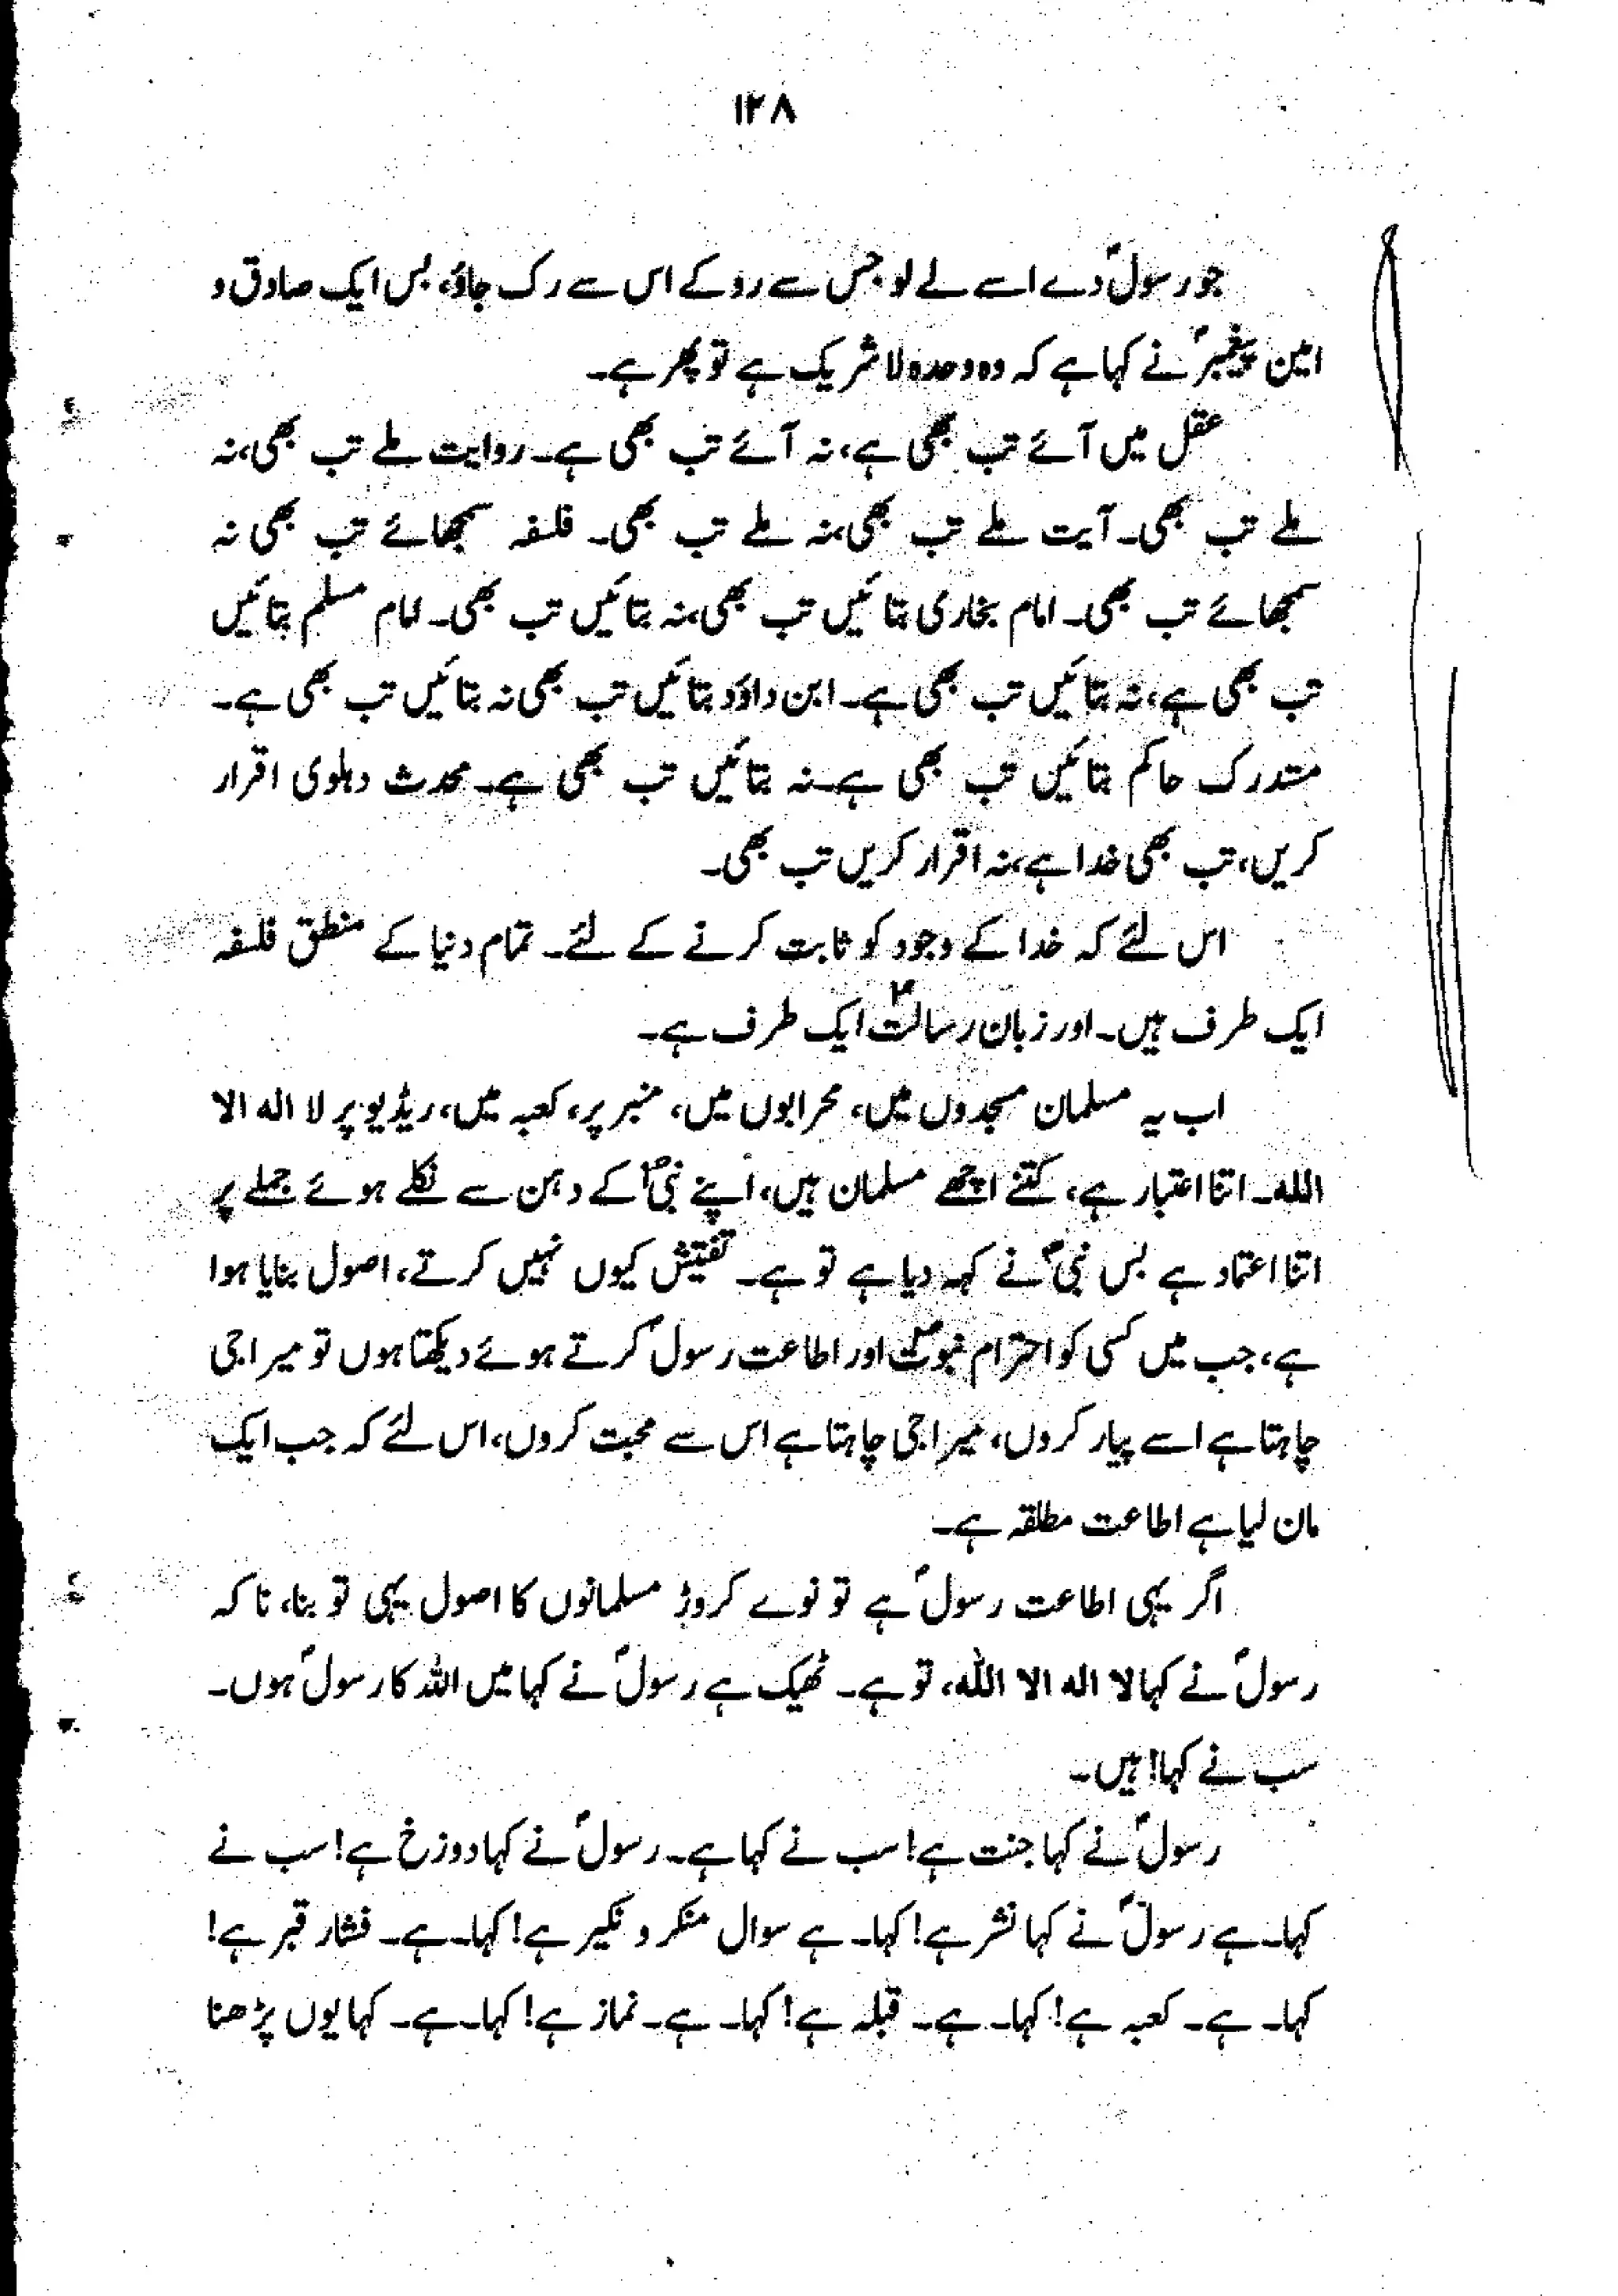 ۱۲۸
جو رسولؐ دے اسے لے لو جس سے روکے اس سے رک جاؤ، بس ایک صادق و
امین پیغمبرؐ نے کہا ہے کہ وہ وحدہ لا شریک ہے تو پھر ہے۔
عقل میں آئے تب بھی ہے، نہ آئے تب بھی ہے۔ روایت ملے تب بھی، نہ
ملے تب بھی۔ آیت ملے تب بھی، نہ ملے تب بھی۔ فلسفہ سمجھائے تب بھی نہ
سمجھائے تب بھی۔ امام بخاری بتائیں تب بھی، نہ بتائیں تب بھی۔ امام مسلم بتائیں
تب بھی ہے، نہ بتائیں تب بھی ہے۔ ابن داؤد بتائیں تب بھی نہ بتائیں تب بھی ہے۔
متدرک حاکم بتائیں تب بھی ہے۔ نہ بتائیں تب بھی ہے۔ محدث دہلوی اقرار
کریں، تب بھی خدا ہے، نہ اقرار کریں تب بھی۔
اس لئے کہ خدا کے وجود کو ثابت کرنے کے لئے۔ تمام دنیا کے منطق فلسفہ
ایک طرف ہیں۔ اور زبان رسالتؐ ایک طرف ہے۔
اب یہ مسلمان مسجدوں میں، محرابوں میں، منبر پر، کعبہ میں، ریڈیو پر لا الہ الا
اللہ۔ اتنا اعتبار ہے، کتنے اچھے مسلمان ہیں، اپنے نبیؐ کے دہن سے نکلے ہوئے جملے پر
اتنا اعتماد ہے بس نبیؐ نے کہہ دیا ہے تو ہے۔ تفتیش کیوں نہیں کرتے، اصول بنایا ہوا
ہے، جب میں کسی کو احترام نبوتؐ اور اطاعت رسولؐ کرتے ہوئے دیکھتا ہوں تو میرا جی
چاہتا ہے اسے پیار کروں، میرا جی چاہتا ہے اس سے محبت کروں، اس لئے کہ جب ایک
مان لیا ہے اطاعت مطلقہ ہے۔
اگر یہی اطاعت رسولؐ ہے تو نوے کروڑ مسلمانوں کا اصول یہی تو بنا، نا کہ
رسولؐ نے کہا لا الہ الا اللہ، تو ہے۔ ٹھیک ہے رسولؐ نے کہا میں اللہ کا رسولؐ ہوں۔
سب نے کہا! ہیں۔
رسولؐ نے کہا جنت ہے! سب نے کہا ہے۔ رسولؐ نے کہا دوزخ ہے! سب نے
کہا۔ ہے رسولؐ نے کہا نشر ہے! کہا۔ ہے سوال منکر و نکیر ہے! کہا۔ ہے۔ فشار قبر ہے!
کہا۔ ہے۔ کعبہ ہے! کہا۔ ہے۔ قبلہ ہے! کہا۔ ہے۔ نماز ہے! کہا۔ ہے۔ کہا یوں پڑھنا